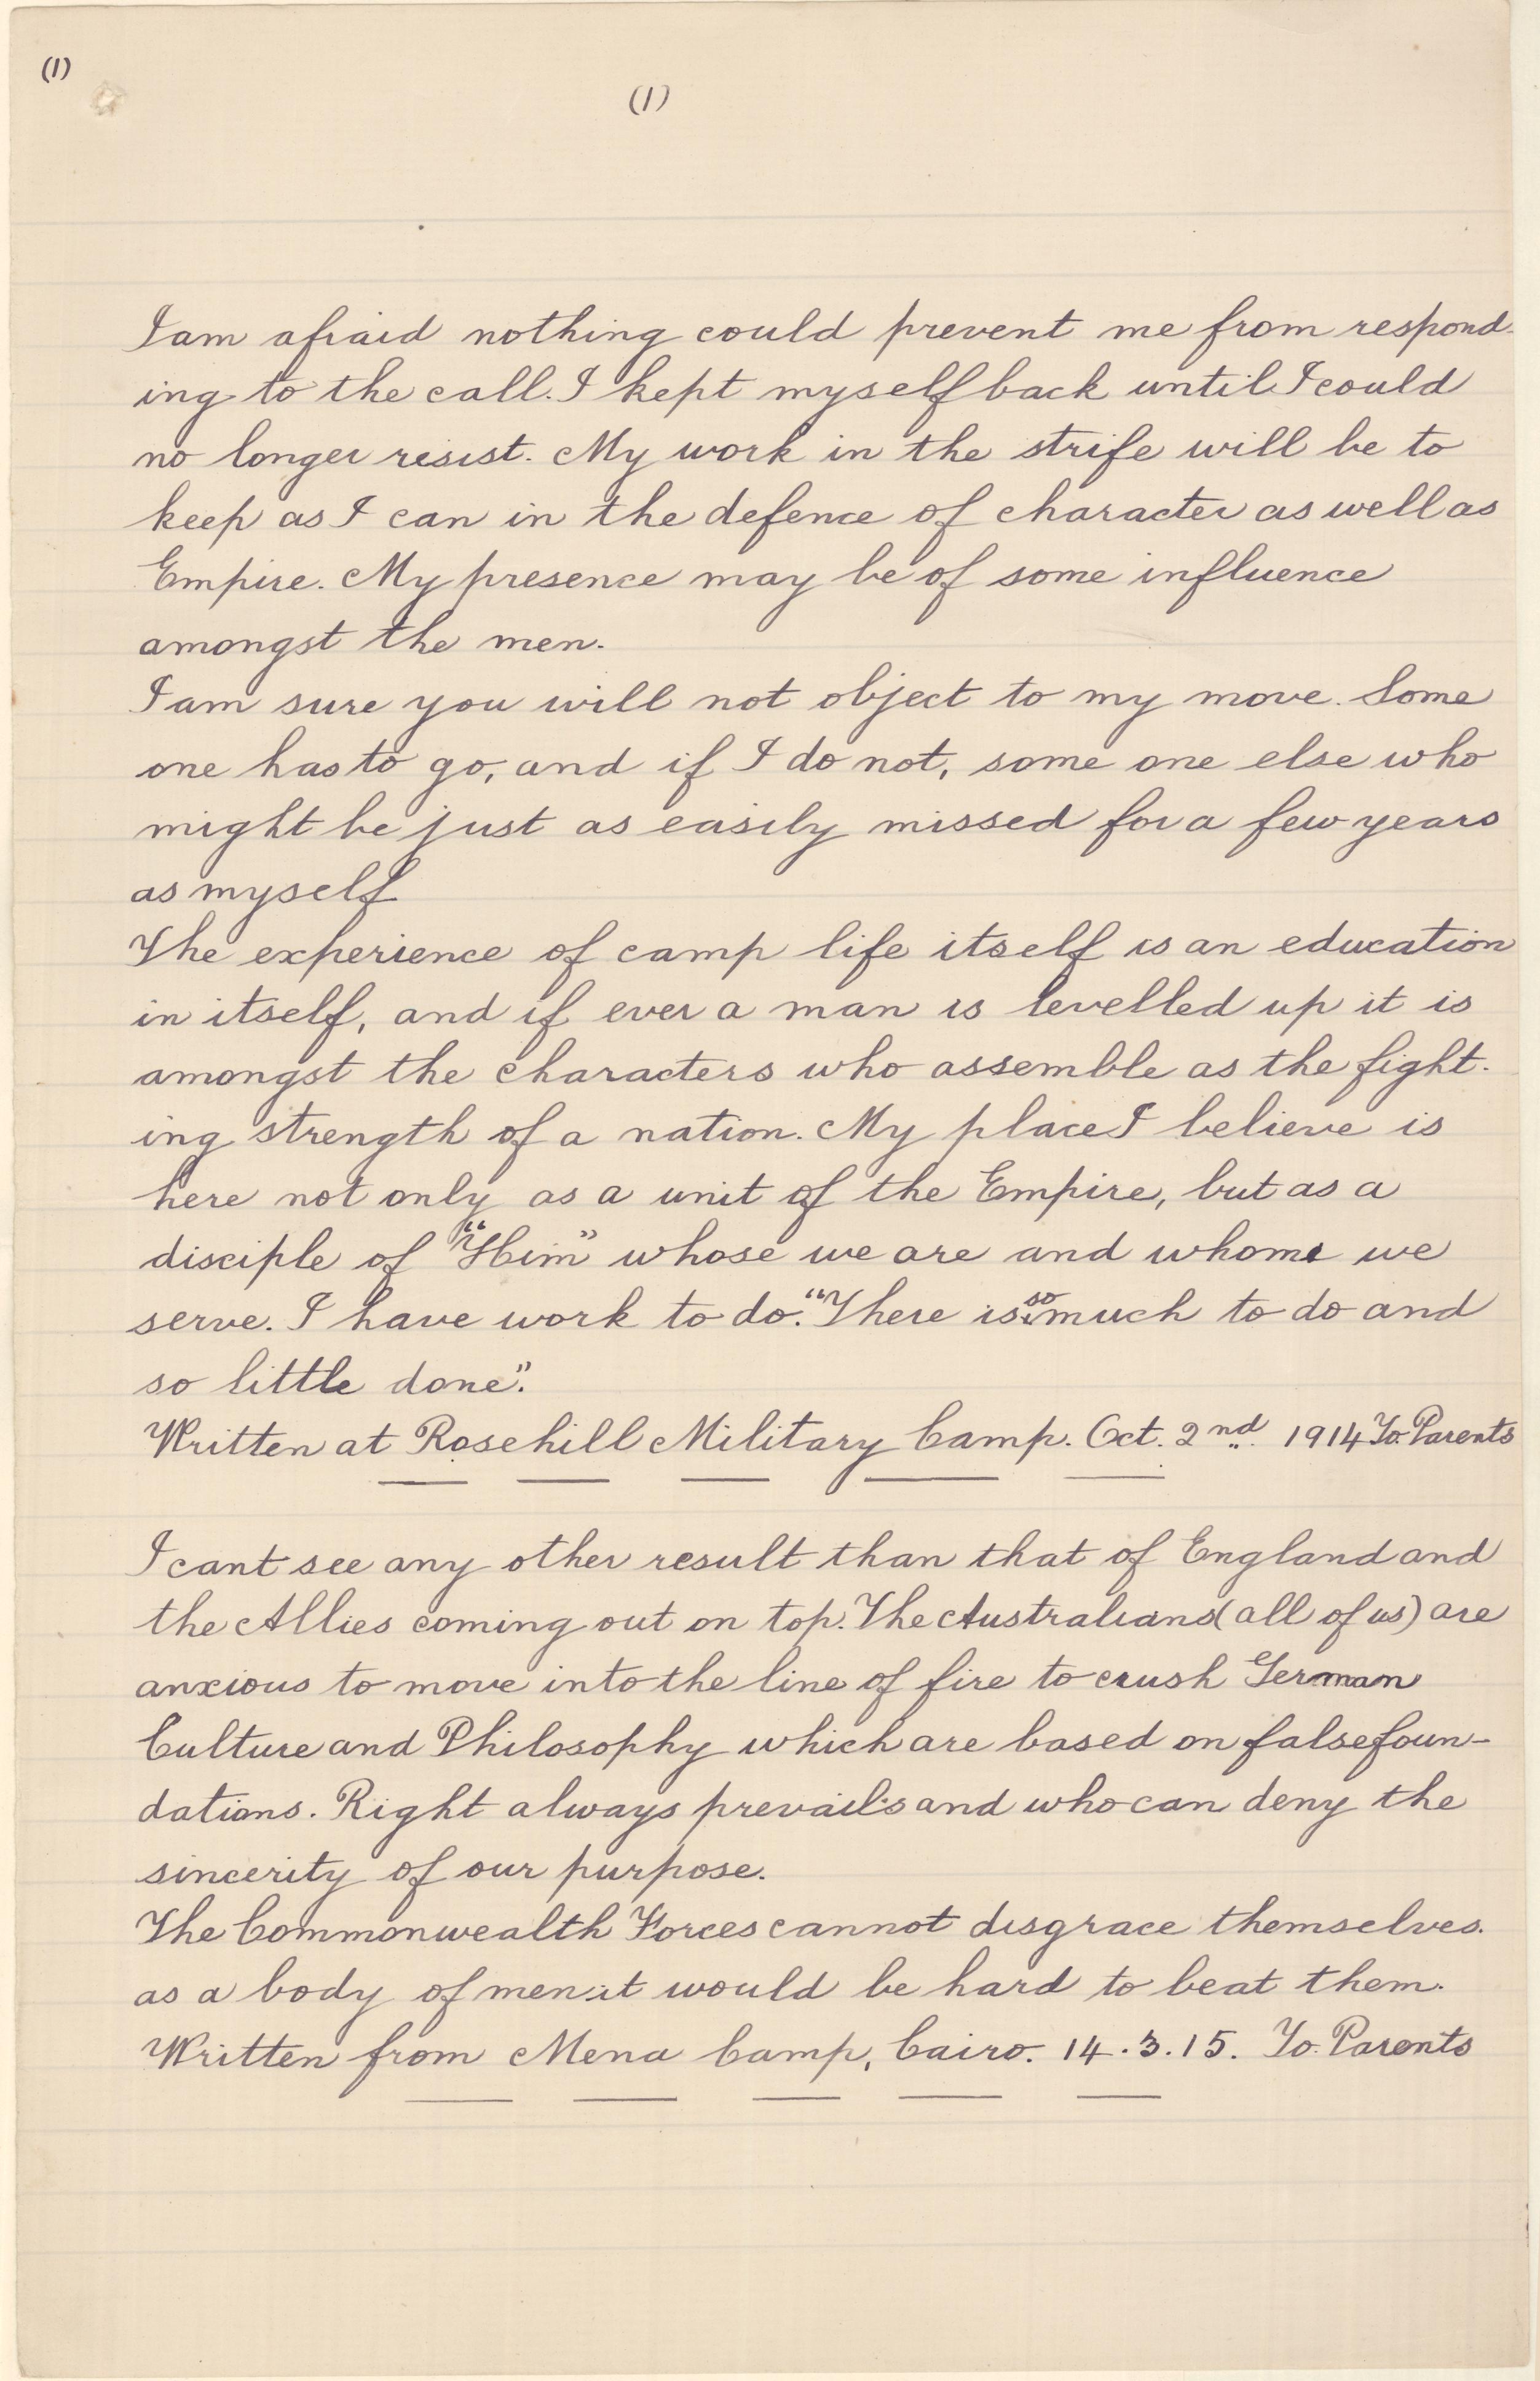 (1)
(1)
I am afraid nothing could prevent me from respond-
ing to the call. I kept myself back until I could
no longer resist. My work in the strife will be to
keep as I can in the defence of character as well as
Empire. My presence may be of some influence
amongst the men.
I am sure you will not object to my move. Some
one has to go, and if I do not, some one else who
might be just as easily missed for a few years
as myself
The experience of camp life itself is an education
in itself, and if ever a man is levelled up it is
amongst the characters who assemble as the fight-
ing strength of a nation. My place I believe is
here not only as a unit of the Empire, but as a
disciple of "Him" whose we are and whom we
serve. I have work to do. "There is so much to do and
so little done".
Written at Rosehill Military Camp. Oct. 2nd 1914 To. Parents
I cant see any other result than that of England and
the Allies coming out on top. The Australians (all of us) are
anxious to move into the line of fire to crush German
Culture and Philosophy which are based on false foun-
dations. Right always prevails and who can deny the
sincerity of our purpose.
The Commonwealth Forces cannot disgrace themselves.
as a body of men it would be hard to beat them.
Written from Mena Camp, Cairo. 14.3.15. To. Parents